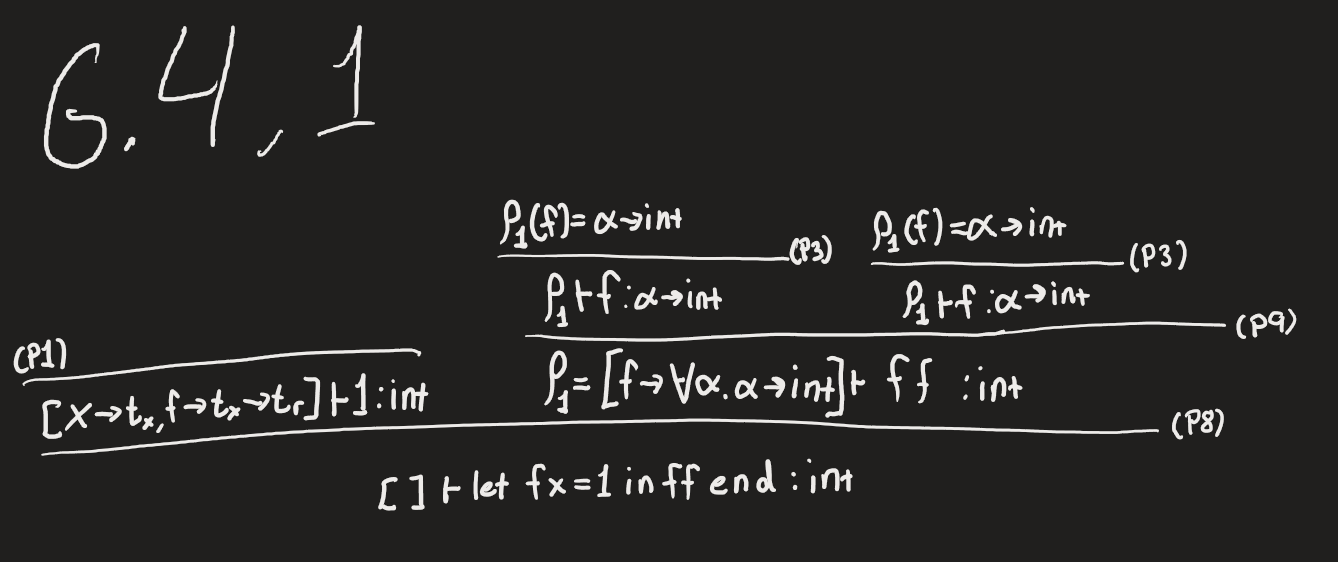 6.4,1
ρ₁(f)=α→int
ρ₁(f)=α→int
(P3)
(P3)
ρ₁⊢f:α→int
ρ₁⊢f:α→int
(P9)
(P1)
[x→tₓ,f→tₓ→tᵣ]⊢1:int
ρ₁=[f→∀α.α→int]⊢ f f :int
(P8)
[ ]⊢let fx=1 in ff end:int